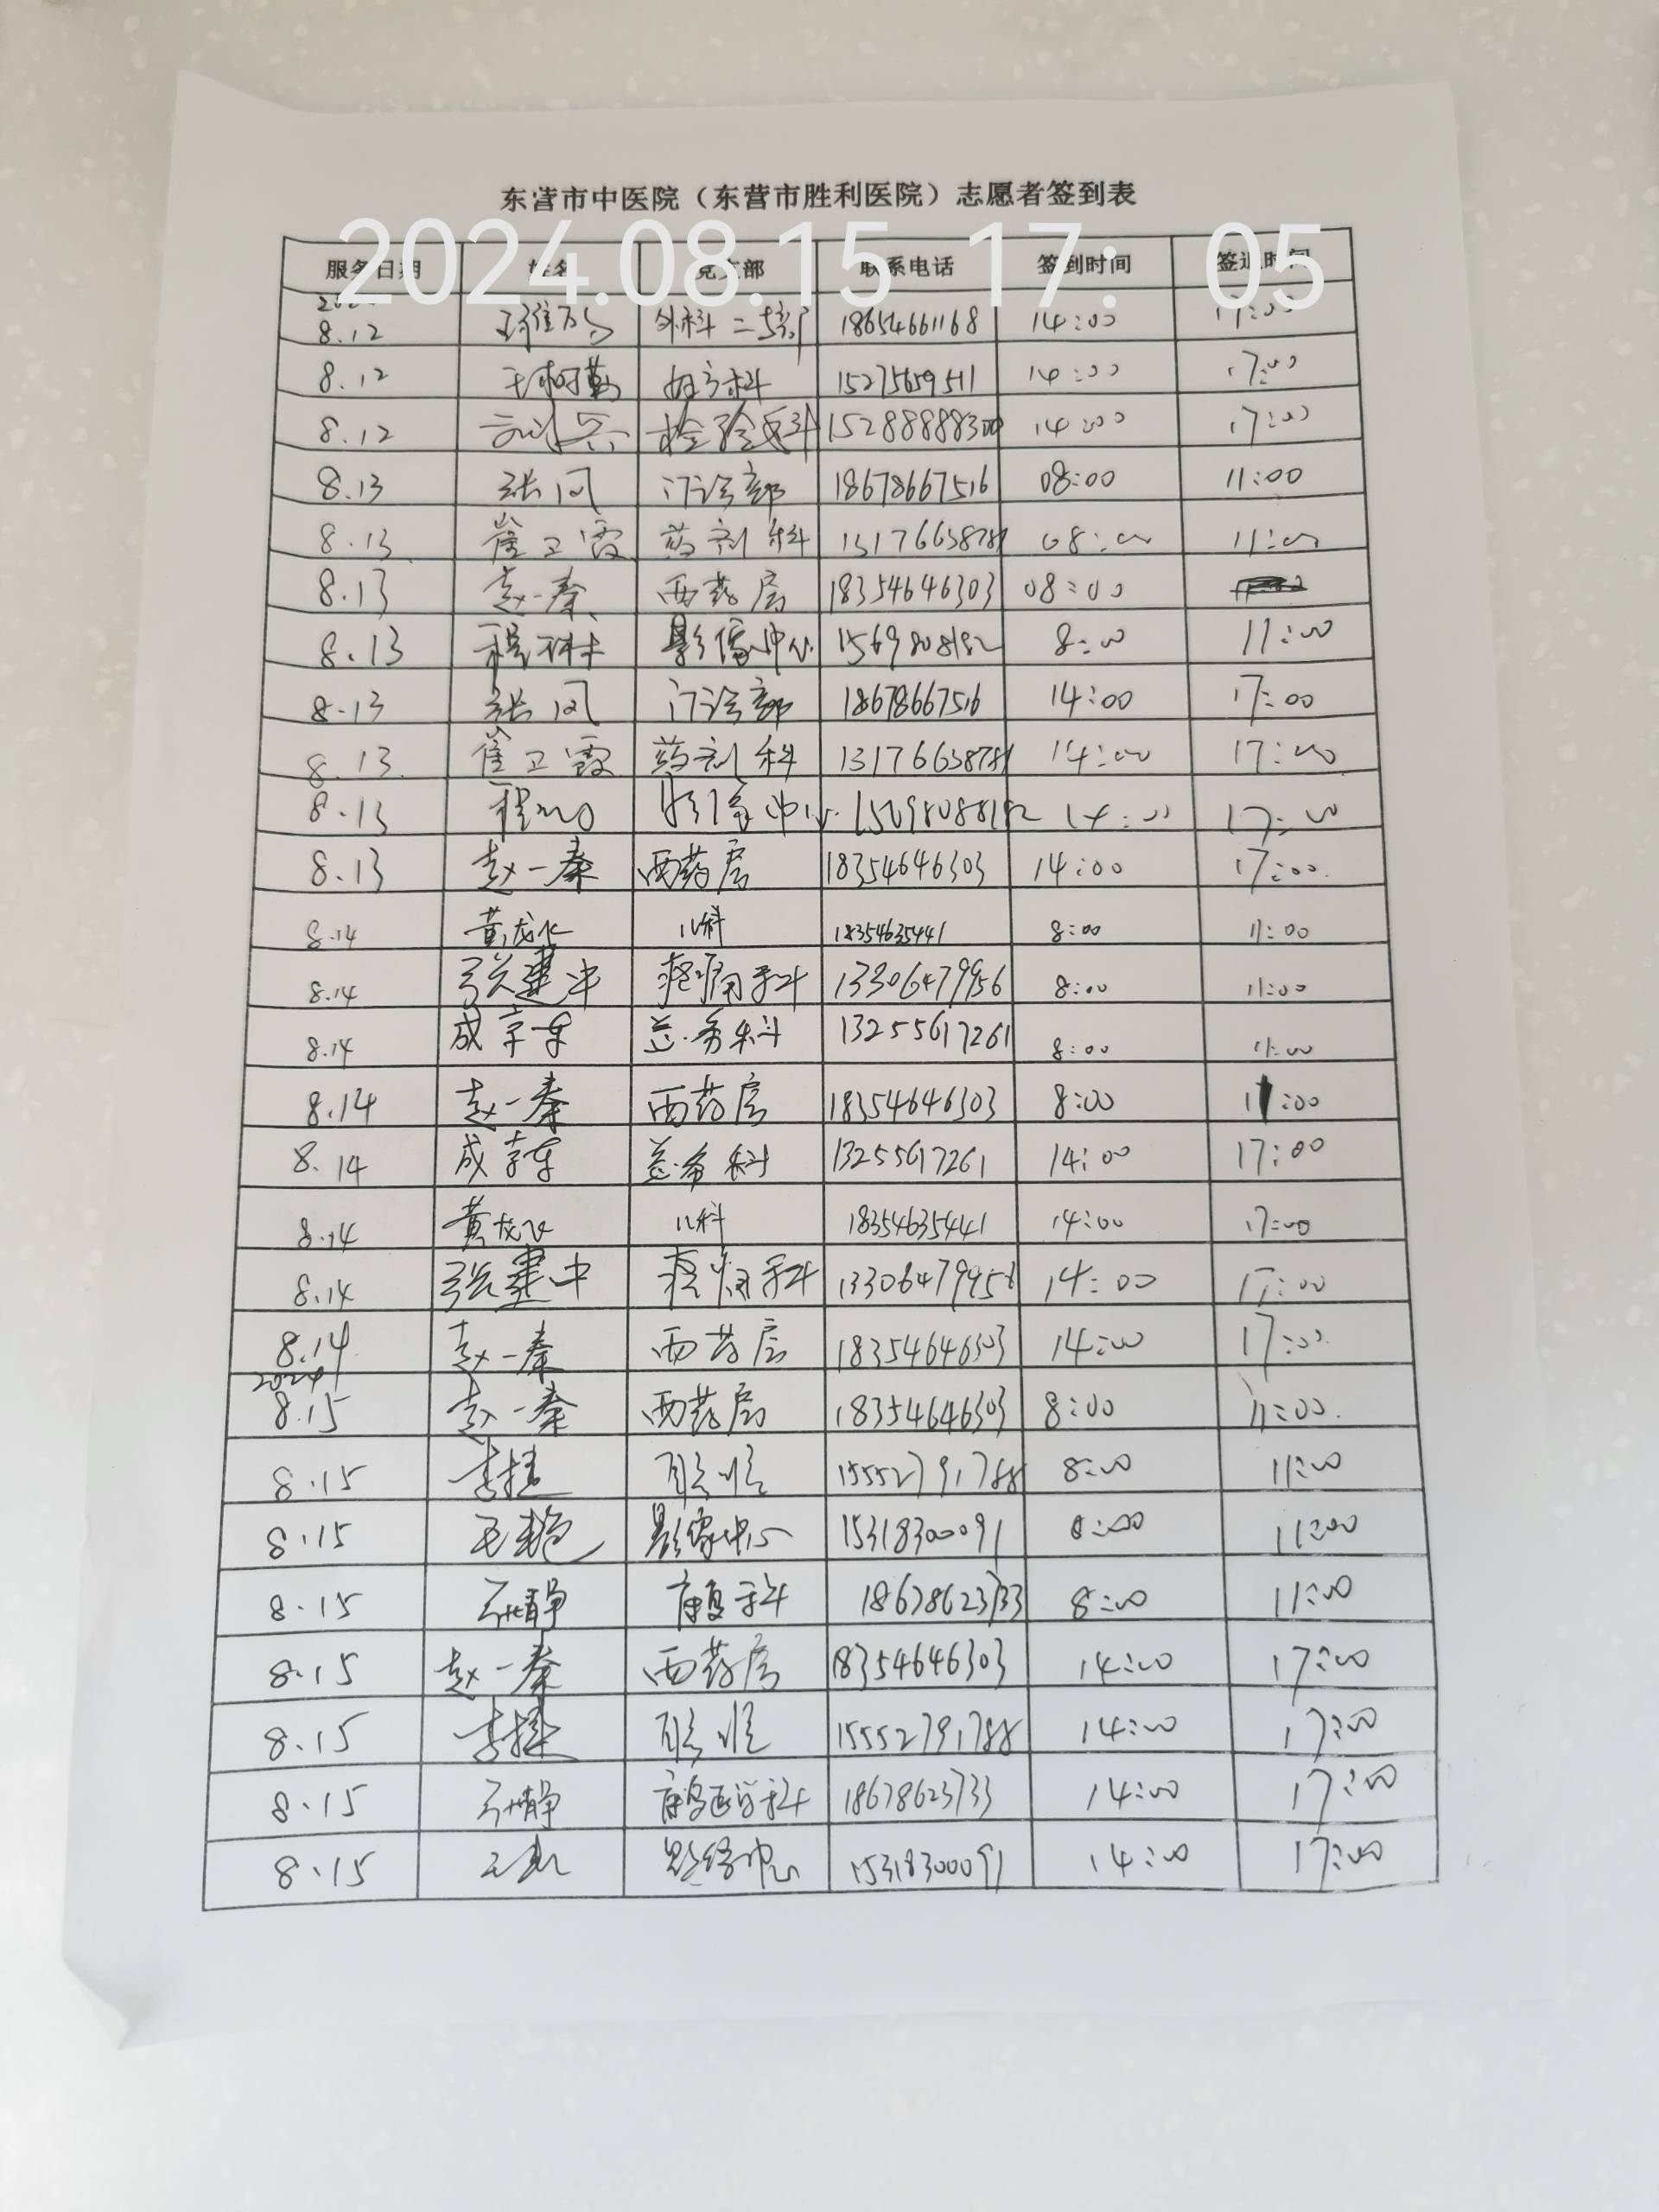 东营市中医院（东营市胜利医院）志愿者签到表
2024.08.15 17：05
服务日期 姓名 党支部 联系电话 签到时间 签退时间
8.12 外科二 18654661168 14:00 17:00
8.12 15275659511 14:00 17:00
8.12 检验科 15288888300 14:00 17:00
8.13 张风 门诊部 18678667516 08:00 11:00
8.13 崔卫霞 药剂科 08:00 11:00
8.13 赵一秦 西药房 18354646303 08:00
8.13 影像中心 8:00 11:00
8.13 张风 门诊部 18678667516 14:00 17:00
8.13 崔卫霞 药剂科 14:00 17:00
8.13 影像中心 14:00 17:00
8.13 赵一秦 西药房 18354646303 14:00 17:00
8.14 黄龙飞 儿科 18354635441 8:00 11:00
8.14 张建中 13306479956 8:00 11:00
8.14 13255617261 8:00 11:00
8.14 赵一秦 西药房 18354646303 8:00 11:00
8.14 13255617261 14:00 17:00
8.14 黄龙飞 儿科 18354635441 14:00 17:00
8.14 张建中 14:00 17:00
8.14 赵一秦 西药房 18354646303 14:00 17:00
2024
8.15 赵一秦 西药房 18354646303 8:00 11:00
8.15 15552791788 8:00 11:00
8.15 影像中心 15318300091 8:00 11:00
8.15 康复科 18678623733 8:00 11:00
8.15 赵一秦 西药房 18354646303 14:00 17:00
8.15 15552791788 14:00 17:00
8.15 康复医学科 18678623733 14:00 17:00
8.15 影像中心 15318300091 14:00 17:00